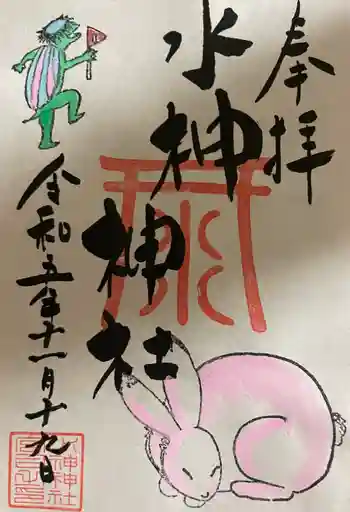 奉拝
水神
神社
水
令和五年十一月十九日
水神神社
宮司之印